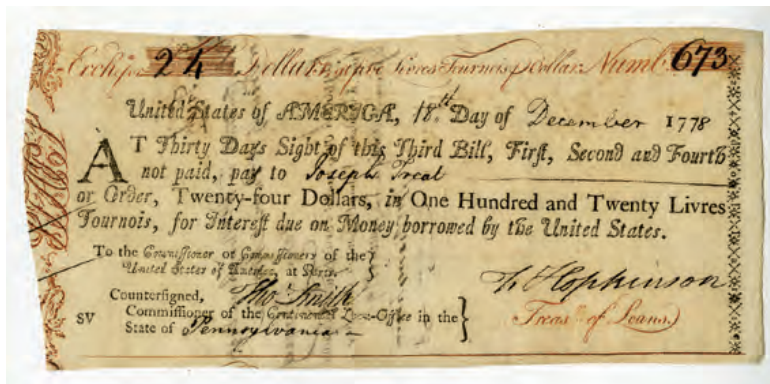 Exch. for 24 Dollars, at five Livres Tournois p Dollar. Numb. 673
United States of AMERICA, 18.th Day of December 1778
AT Thirty Days Sight of this Third Bill, First, Second and Fourth
not paid, pay to Joseph Treat
or Order, Twenty-four Dollars, in One Hundred and Twenty Livres
Tournois, for Interest due on Money borrowed by the United States.
To the Commissioner or Commissioners of the
United States of America, at Paris.
F Hopkinson
Countersigned, Tho Smith
Treas.r of Loans.
SV Commissioner of the Continental Loan-Office in the
State of Pennsylvania